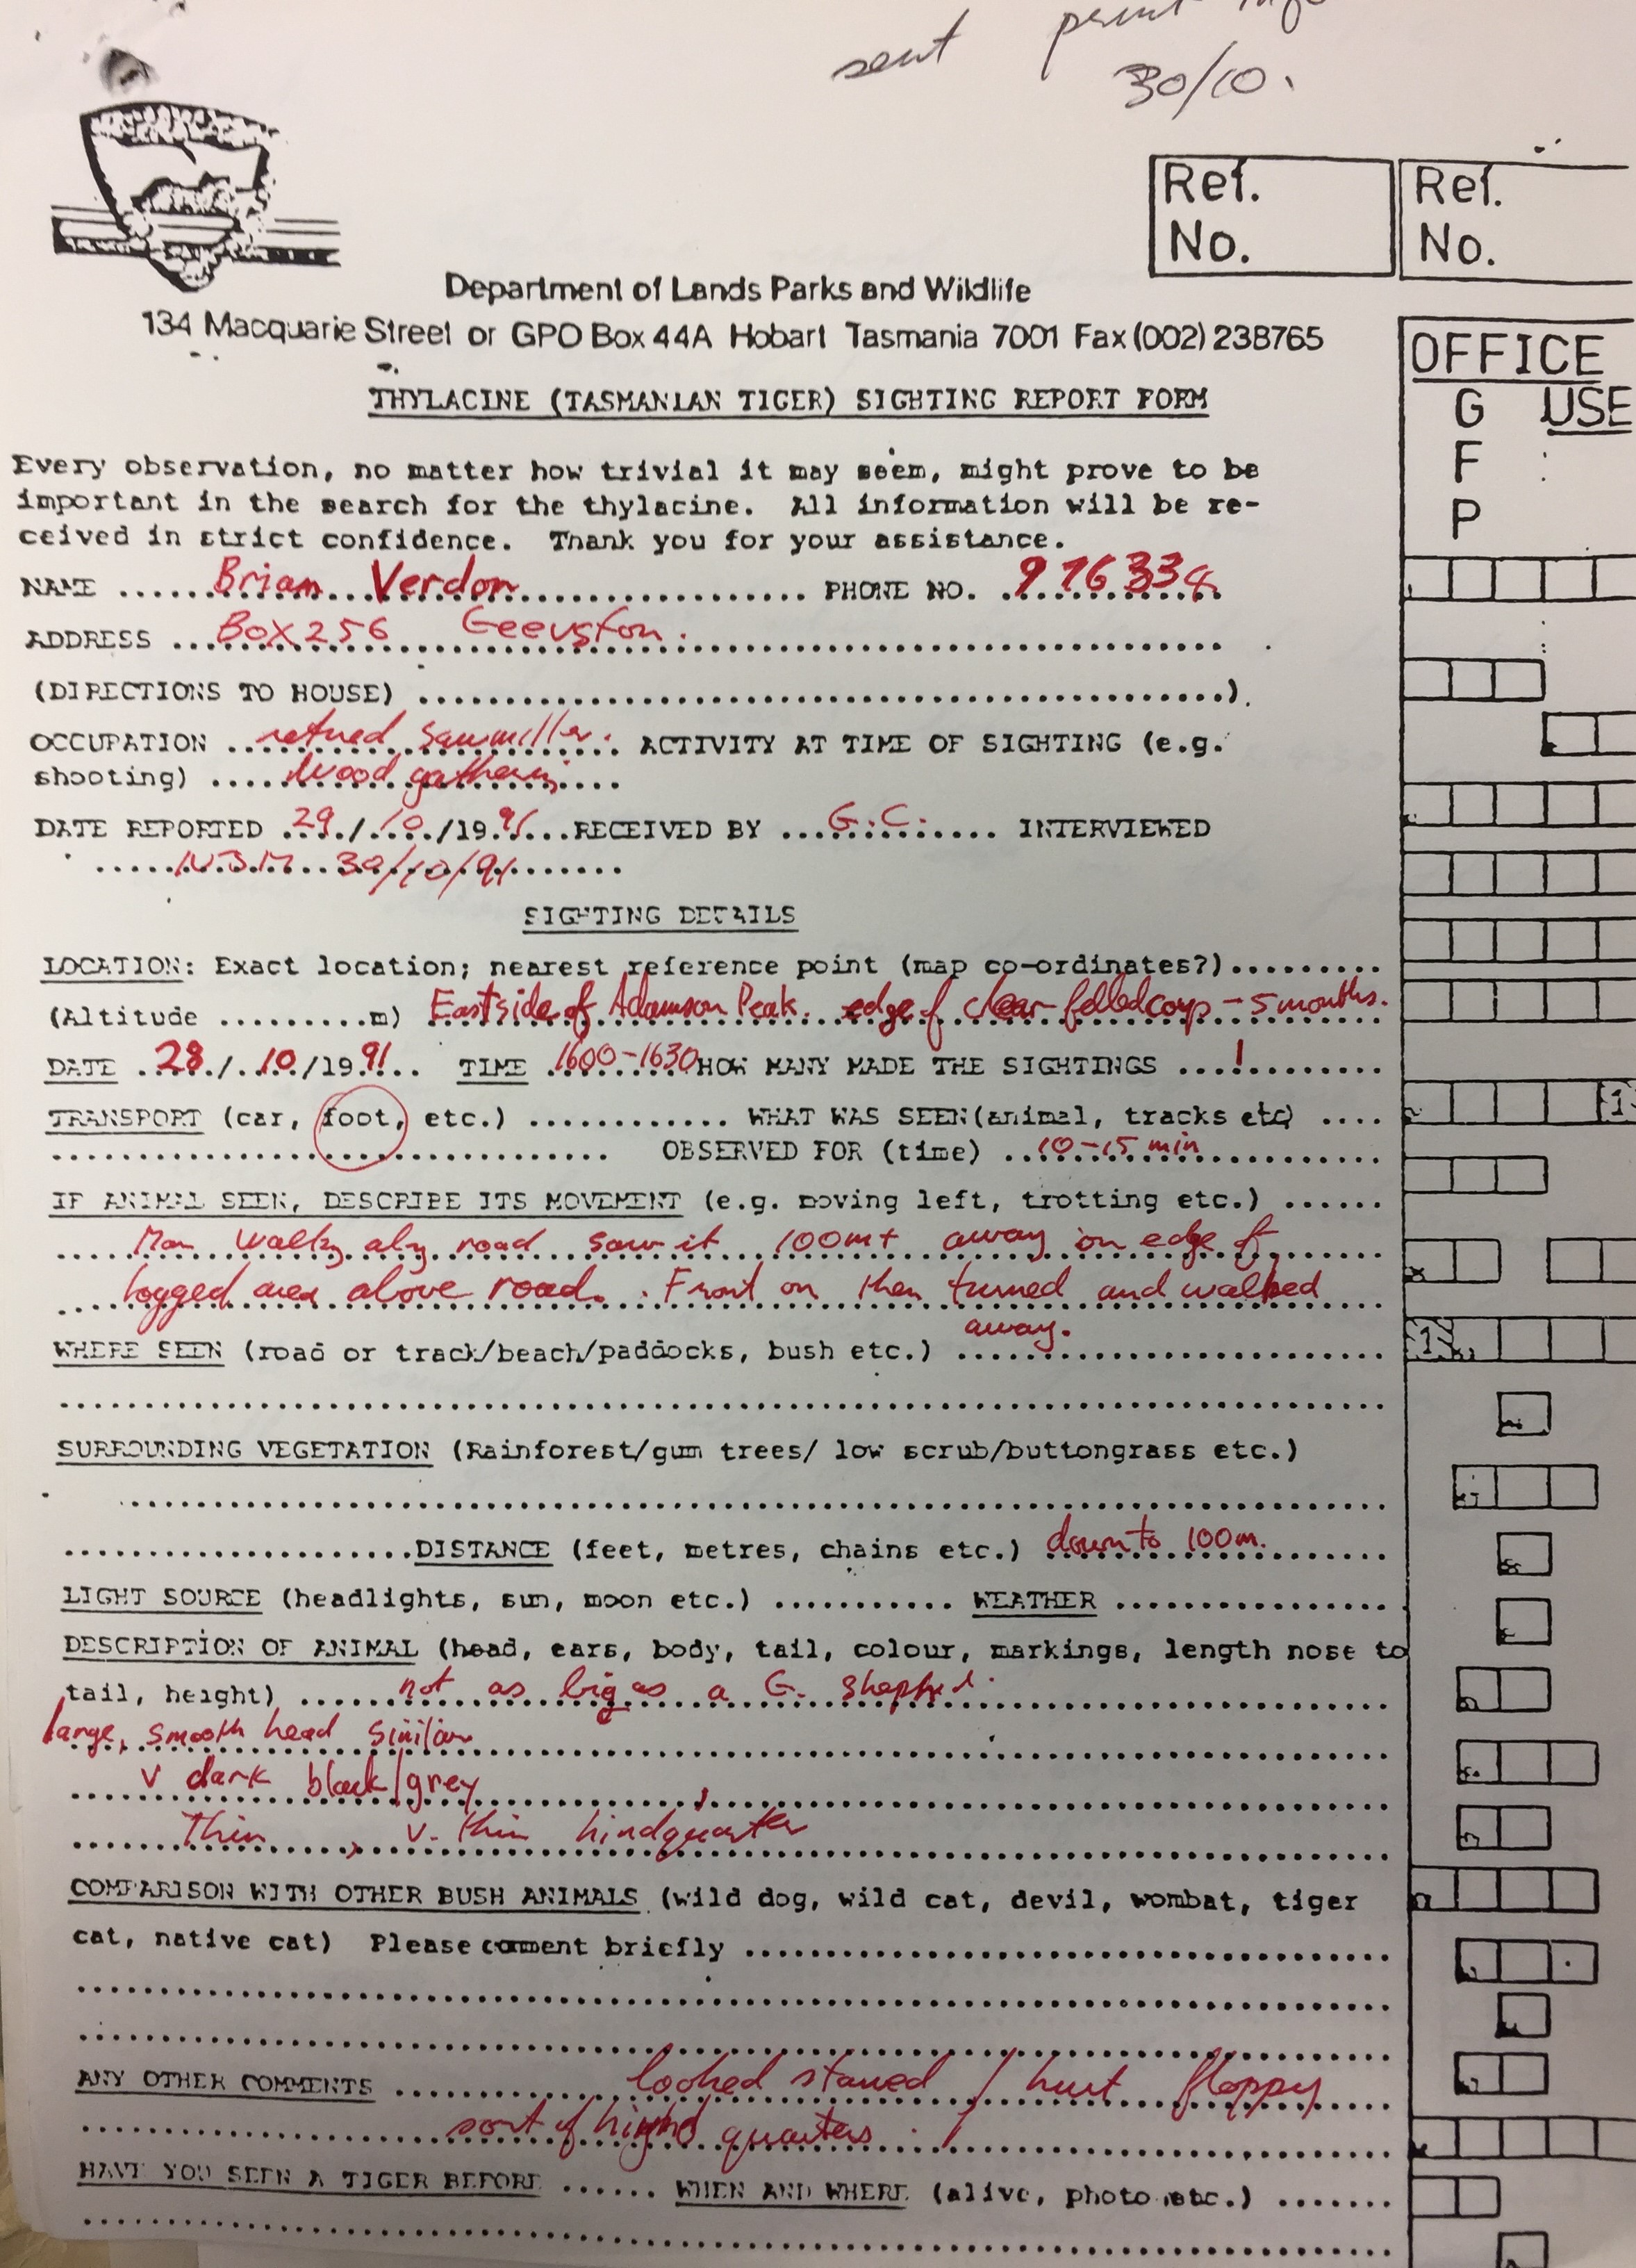 sent
30/10.
Ref. No.
Ref. No.
Department of Lands Parks and Wildlife
134 Macquarie Street or GPO Box 44A Hobart Tasmania 7001 Fax (002) 238765
THYLACINE (TASMANIAN TIGER) SIGHTING REPORT FORM
OFFICE
G USE
F
P
Every observation, no matter how trivial it may seem, might prove to be
important in the search for the thylacine. All information will be re-
ceived in strict confidence. Thank you for your assistance.
NAME Brian Verdon PHONE NO. 976338
ADDRESS Box 256 Geevston.
(DIRECTIONS TO HOUSE) ).
OCCUPATION retired sawmiller. ACTIVITY AT TIME OF SIGHTING (e.g.
shooting) Wood gathering
DATE REPORTED 29/10/1991 RECEIVED BY G.C. INTERVIEWED
N.J.M 30/10/91
SIGHTING DETAILS
LOCATION: Exact location; nearest reference point (map co-ordinates?)
(Altitude m) East side of Adamson Peak. edge of clear-felled - 5 months.
DATE 28/10/1991 TIME 1600-1630 HOW MANY MADE THE SIGHTINGS 1
TRANSPORT (car, foot, etc.) WHAT WAS SEEN (animal, tracks etc)
OBSERVED FOR (time) 10-15 min
IF ANIMAL SEEN, DESCRIBE ITS MOVEMENT (e.g. moving left, trotting etc.)
Man walking along road saw it 100m+ away on edge of
logged area above road. Front on then turned and walked
away.
WHERE SEEN (road or track/beach/paddocks, bush etc.)
SURROUNDING VEGETATION (Rainforest/gum trees/ low scrub/buttongrass etc.)
DISTANCE (feet, metres, chains etc.) down to 100m.
LIGHT SOURCE (headlights, sun, moon etc.) WEATHER
DESCRIPTION OF ANIMAL (head, ears, body, tail, colour, markings, length nose to
tail, height) not as big as a G. Shepherd.
large, smooth head similar
v dark black/grey
Thin, v. thin hindquarter
COMPARISON WITH OTHER BUSH ANIMALS (wild dog, wild cat, devil, wombat, tiger
cat, native cat) Please comment briefly
ANY OTHER COMMENTS looked starved / hurt floppy
sort of hind quarters.
HAVE YOU SEEN A TIGER BEFORE WHEN AND WHERE (alive, photo etc.)